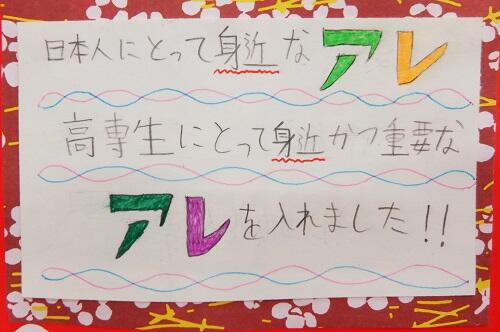 日本人にとって身近なアレ
高専生にとって身近かつ重要な
アレを入れました!!